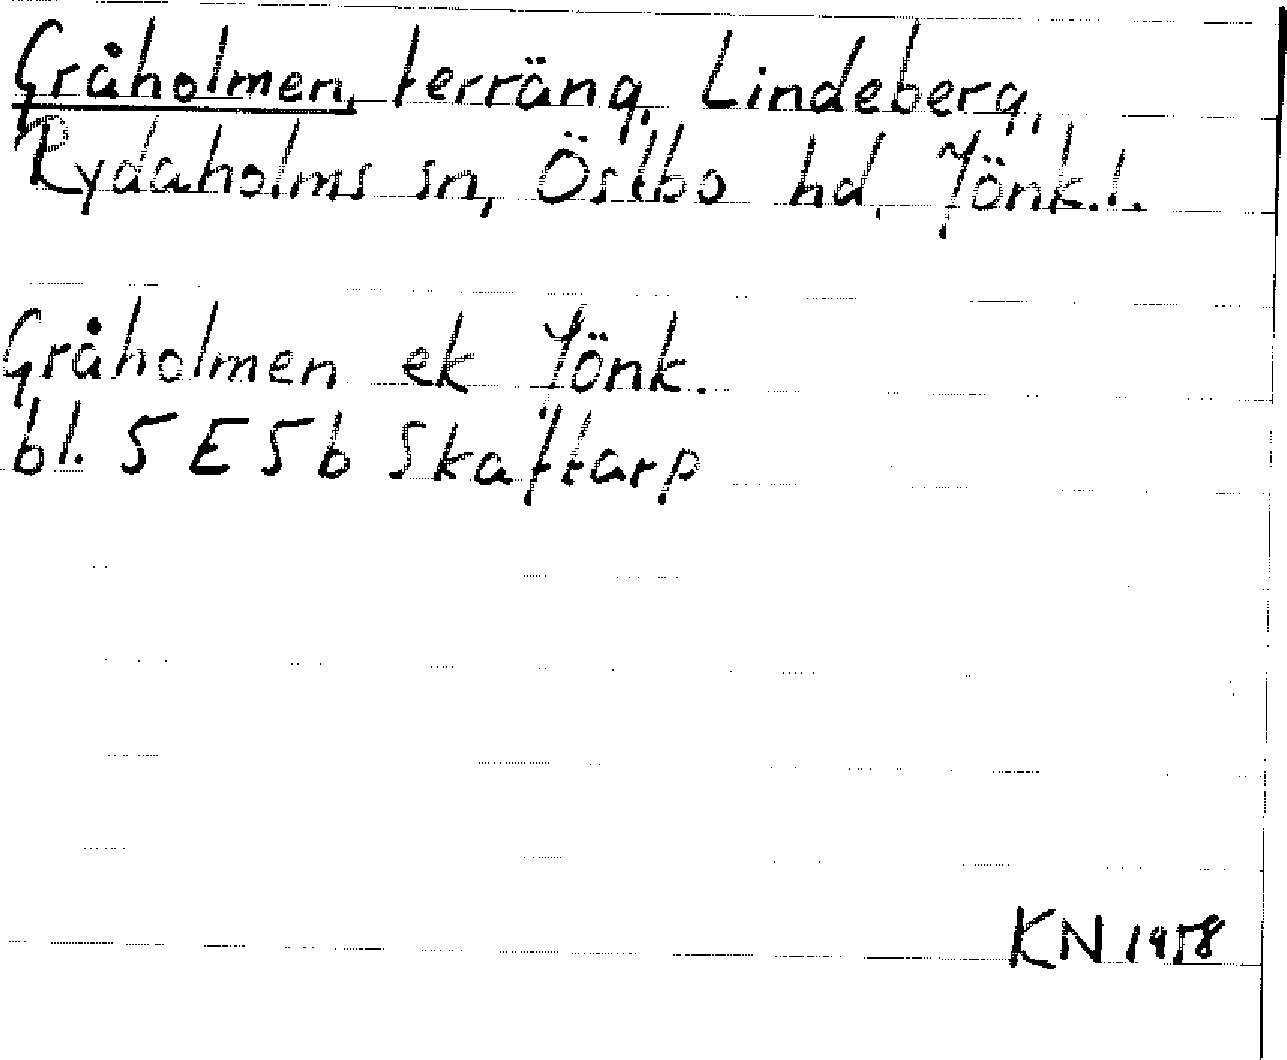 Gråholmen, terräng, Lindeberg,
Rydaholms sn, Östbo hd, Jönk.l.
Gråholmen ek Jönk.
bl. 5E5b Skaftarp
KN 1958